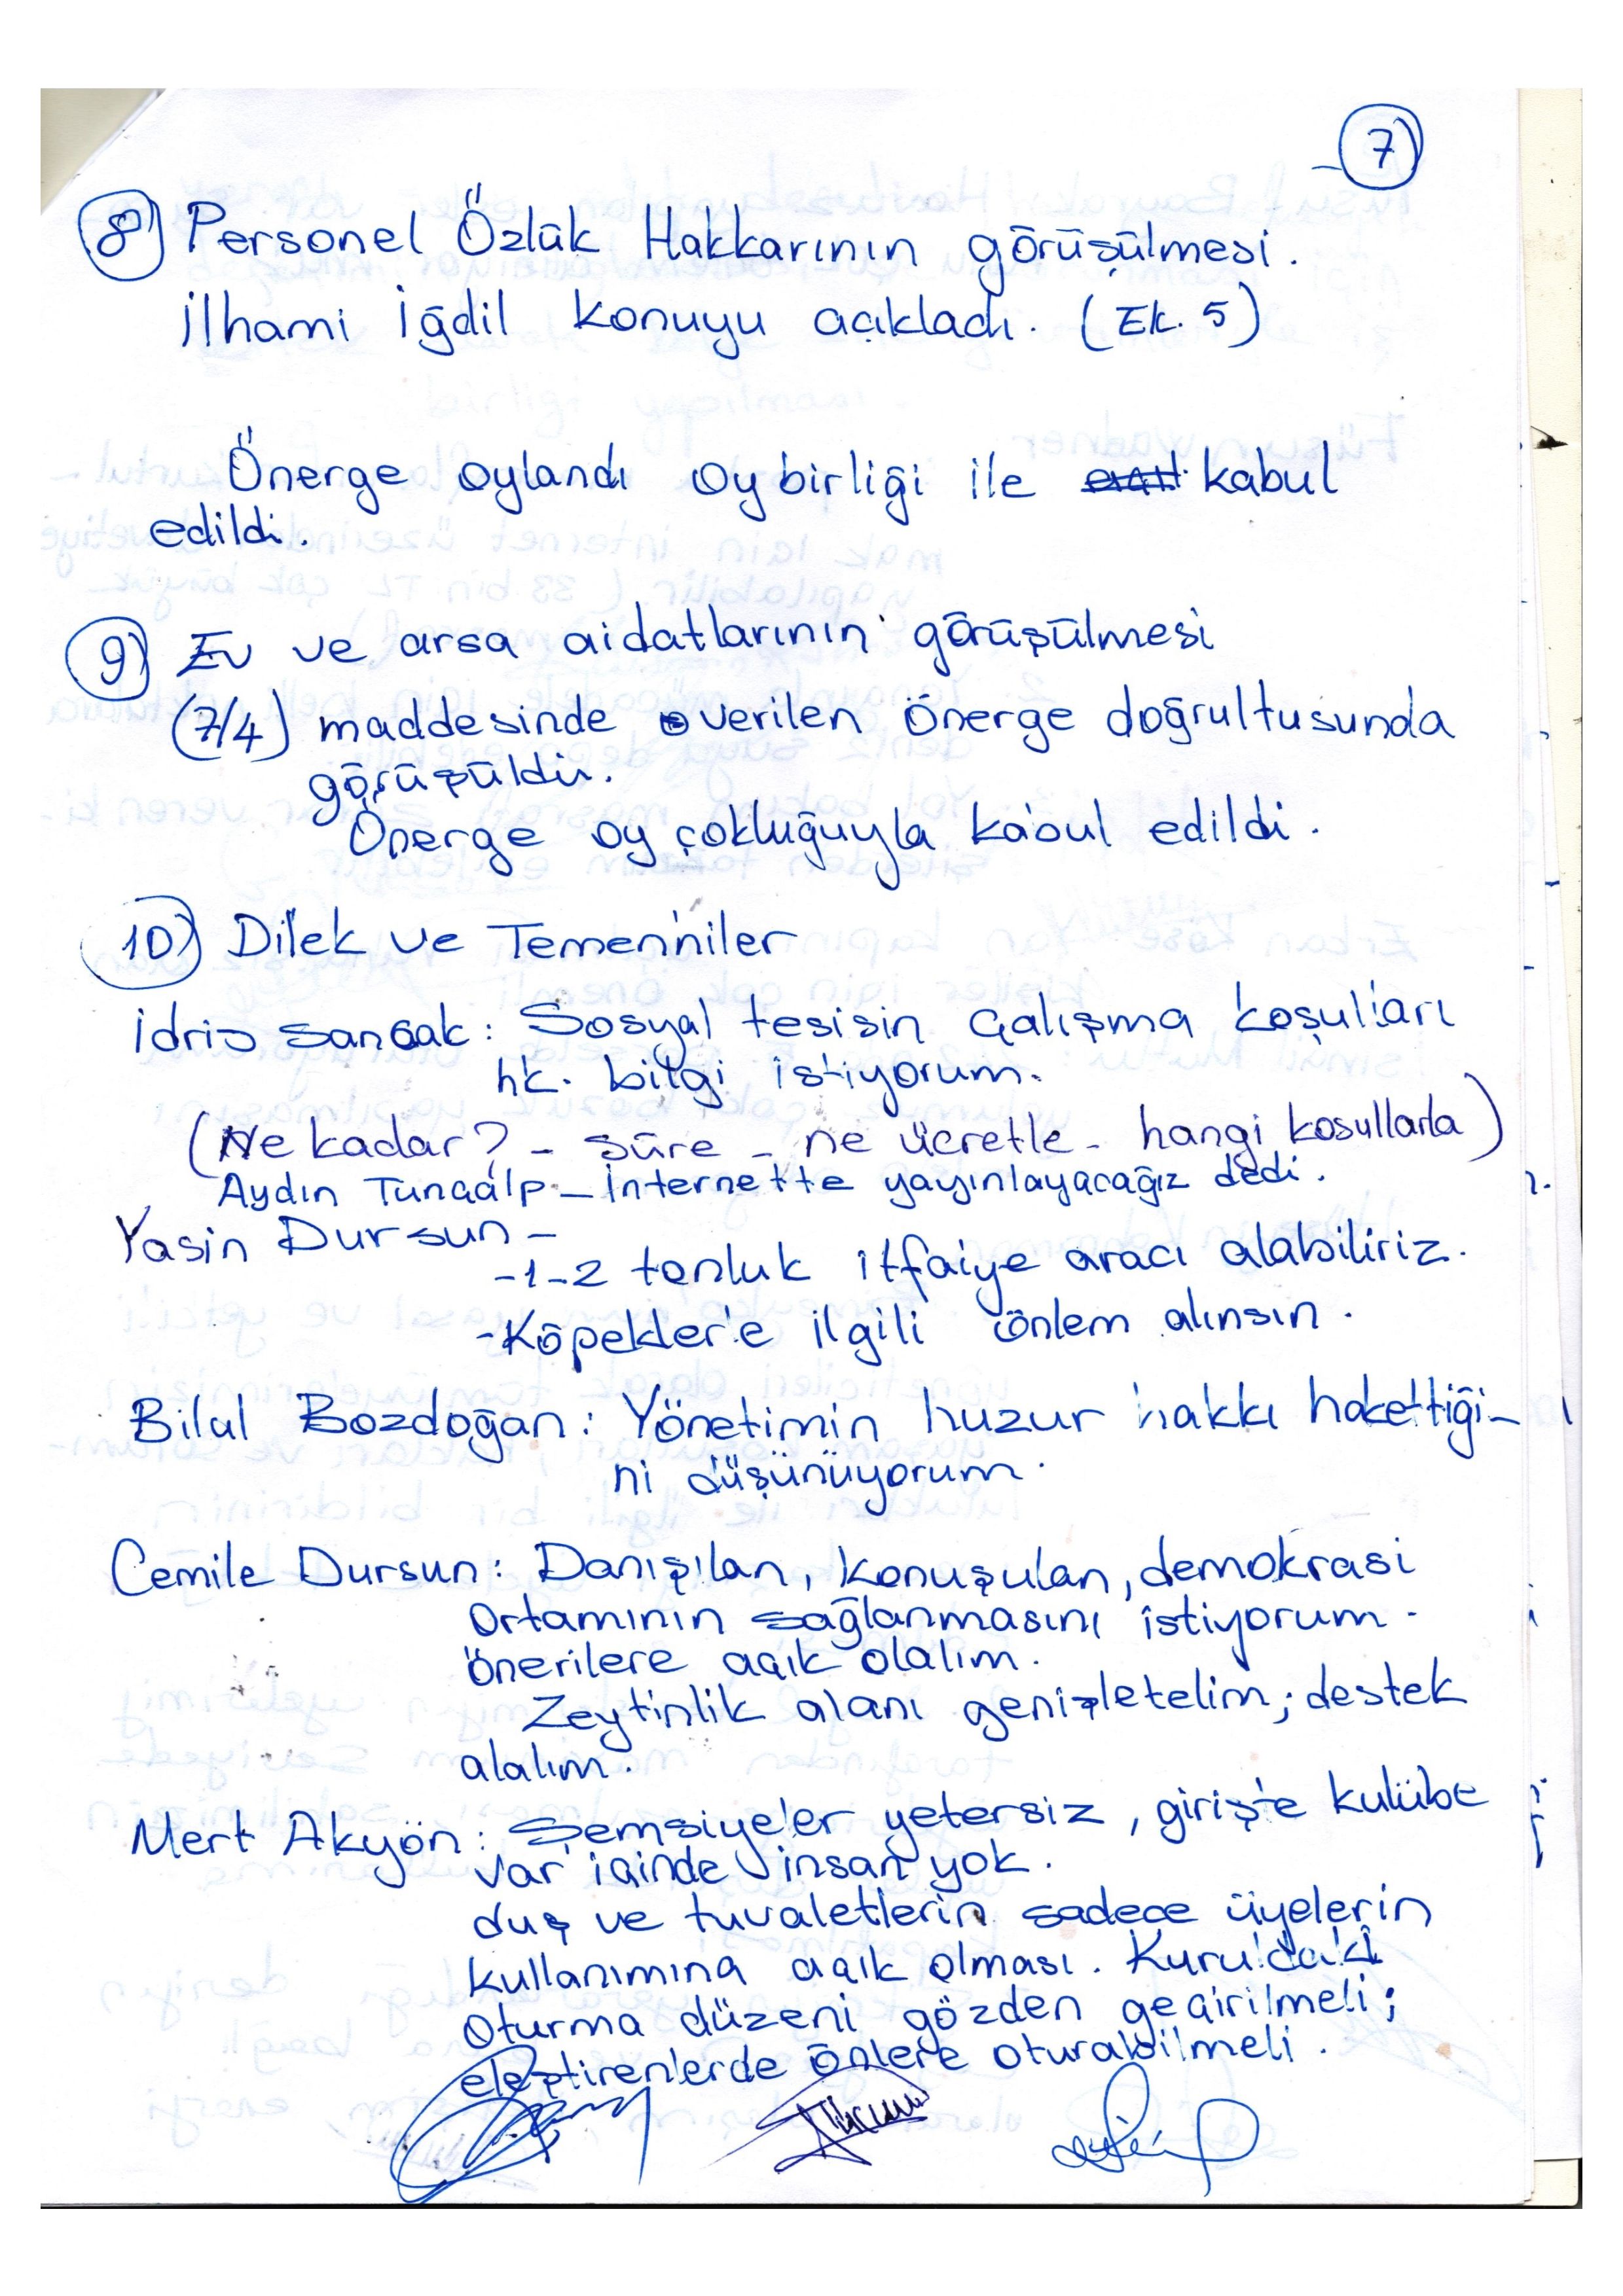 7
8) Personel Özlük Hakkarının görüşülmesi.
İlhami İğdil konuyu açıkladı. (Ek. 5)
Önerge oylandı oybirliği ile kabul
edildi.
9) Ev ve arsa aidatlarının görüşülmesi
(7/4) maddesinde verilen önerge doğrultusunda
görüşüldü.
Önerge oy çokluğuyla kabul edildi.
10) Dilek ve Temenniler
İdris Sancak: Sosyal tesisin çalışma koşulları
hk. bilgi istiyorum.
(Ne kadar? - süre - ne ücretle - hangi kosullarla)
Aydın Tuncalp - İnternette yayınlayacağız dedi.
Yasin Dursun -
-1-2 tonluk itfaiye aracı alabiliriz.
-Köpeklerle ilgili önlem alınsın.
Bilal Bozdoğan: Yönetimin huzur hakkı hakettiği-
ni düşünüyorum.
Cemile Dursun: Danışılan, konuşulan, demokrasi
ortamının sağlanmasını istiyorum.
önerilere açık olalım.
Zeytinlik alanı genişletelim; destek
alalım.
Mert Akyön: Şemsiyeler yetersiz, girişte kulübe
var içinde insan yok.
duş ve tuvaletlerin sadece üyelerin
kullanımına açık olması. Kuruldaki
oturma düzeni gözden geçirilmeli;
eleştirenlerde önlere oturabilmeli.